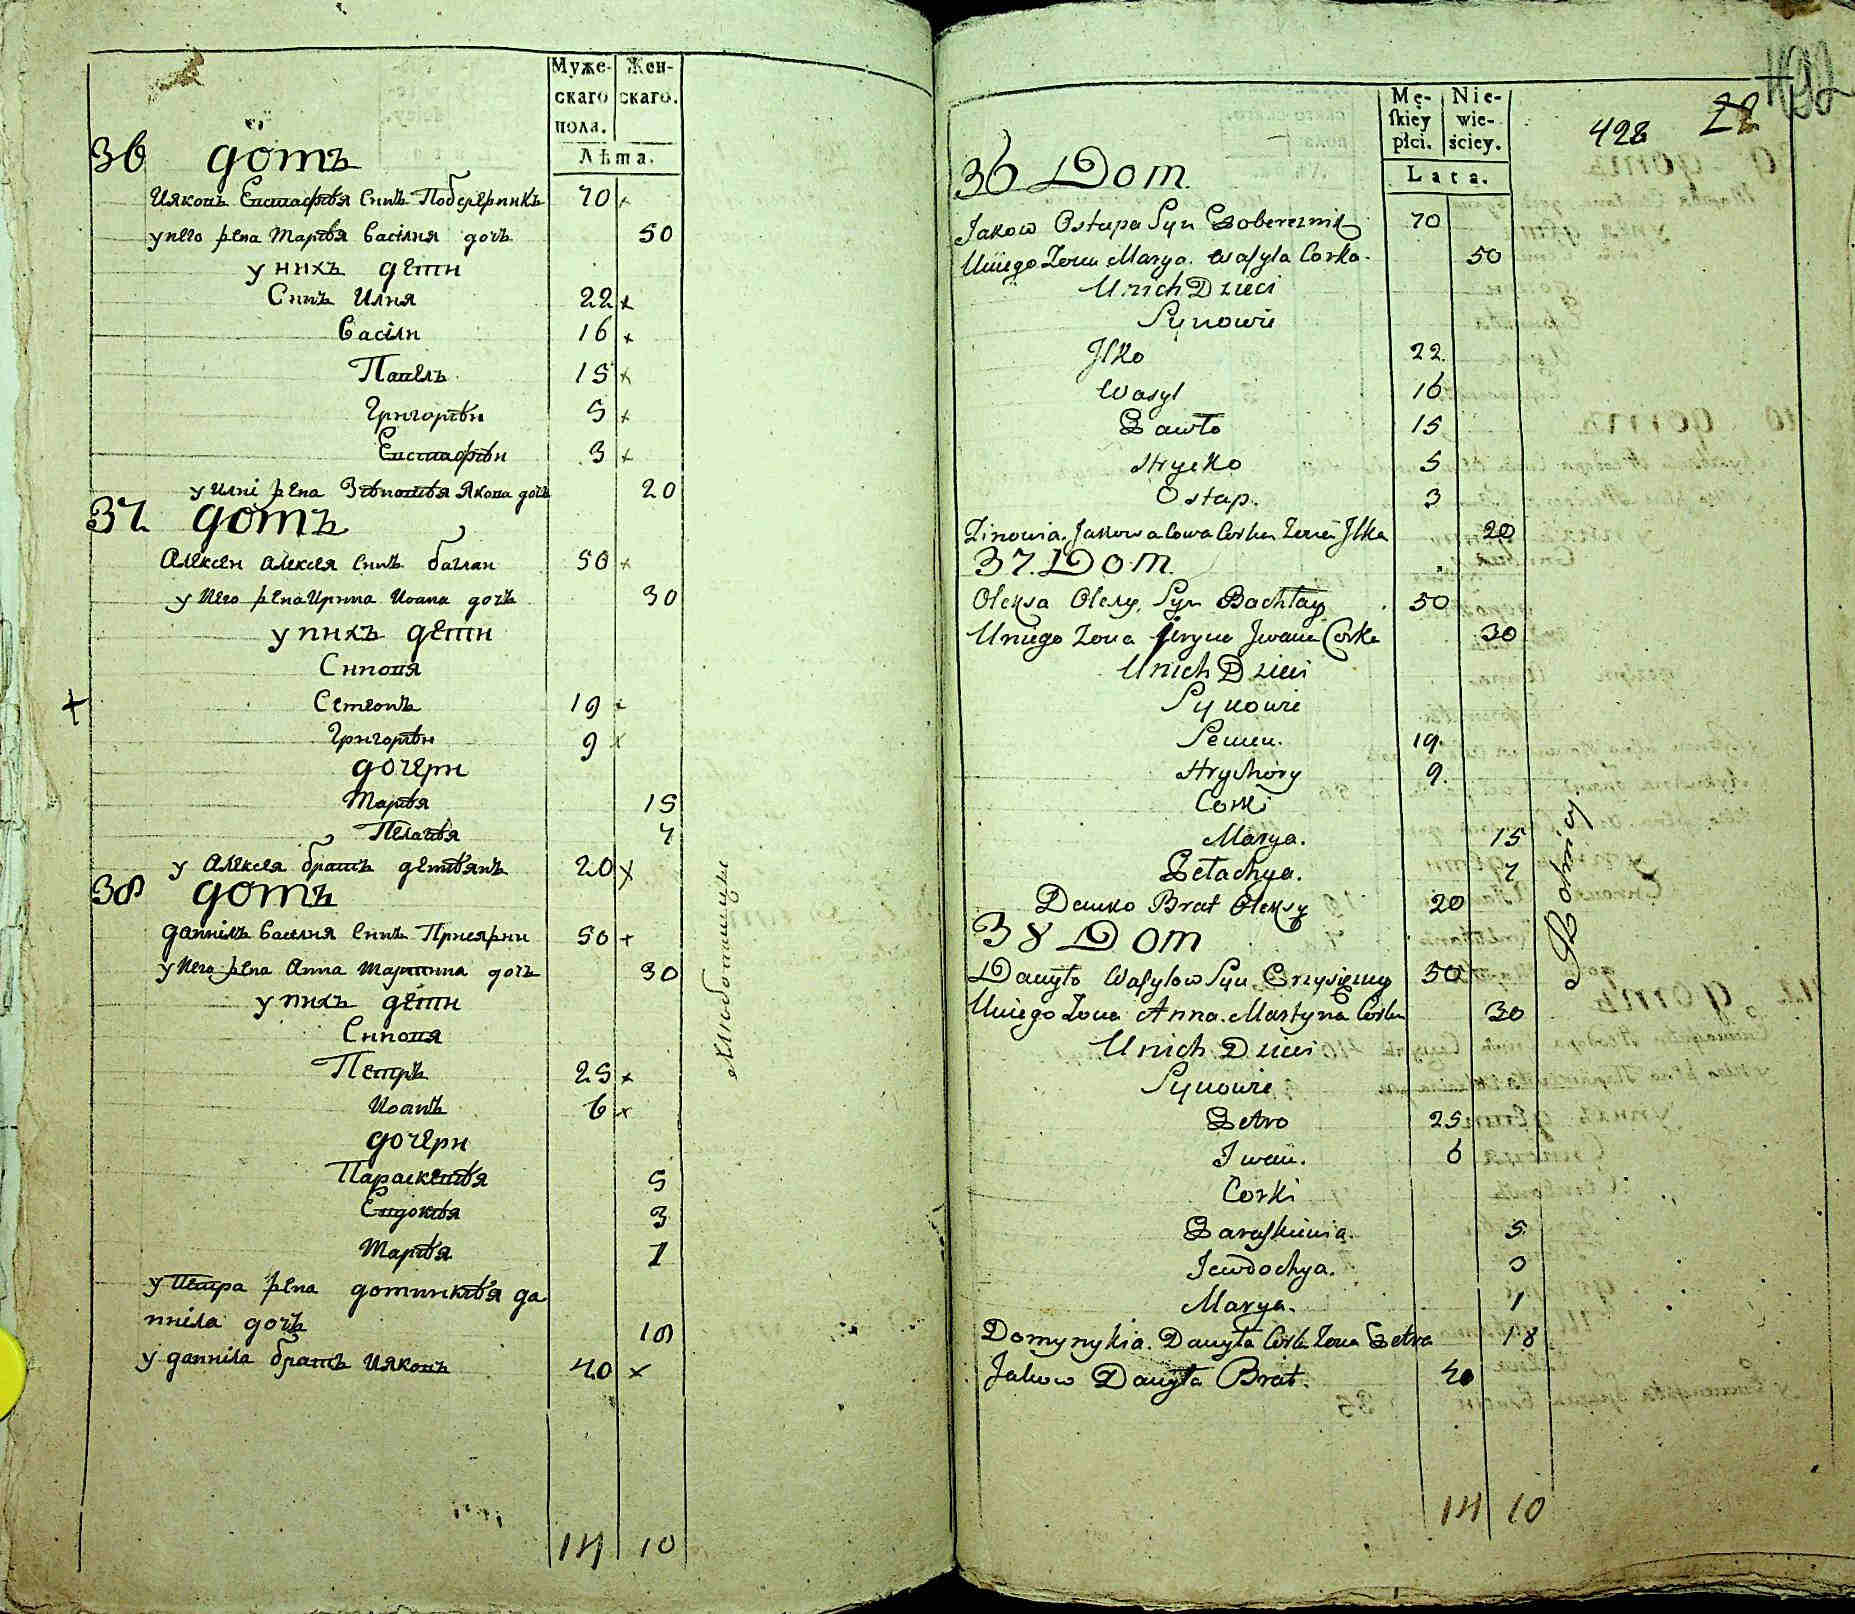 Муже-
скаго
пола.
Жен-
скаго.
Лѣта.
36 домъ
Ияковъ Евстафія синъ Побережникъ 70
у него жена Марія Василия дочъ 50
у нихъ дети
Синъ Илия 22
Васили 16
Павелъ 15
Григорій 5
Евстафій 3
у Илиі жена Зѣновія Якова дочъ 20
37 домъ
Алексеи Алексея синъ баглаи 50
у него жена Ирина Иоана дочъ 30
у нихъ дети
Синовя
Семеонъ 19
Григорій 9
дочери
Марія 15
Пелагія 7
у Алексея братъ 20
38 домъ
Данніилъ Василия синъ 50
у него жена Анна Мартина дочъ 30
у нихъ дети
Синовя
Петръ 25
Иоанъ 6
дочери
Параскевія 5
Евдокія 3
Марія 1
у Петра жена доминикія да
нніила дочъ 18
у данніила братъ Ияковъ 40
14 10
Mę-
skiey
płci.
Nie-
wie-
ściey.
Lata.
428 22
36 Dom
Jakow Ostapa Syn Pobereznik 70
Uniego Zona Marya. Wasyla Corka. 50
Unich Dzieci
Synowie
Jlko 22
Wasyl 16
Pawło 15
Hryćko 5
Ostap. 3
Zinowia. Jakowa Corka Zona Jlka 20
37. Dom.
Olexa Olexy, Syn Bachłay 50
Uniego Zona Jryna Jwana Corka 30
Unich Dzieci
Synowie
Semen. 19.
Hryhory 9.
Corki
Marya. 15
Pełachya. 7
Demko Brat Olexy 20
38 Dom
Danyło Wasylow Syn 50
Uniego Zona Anna. Martyna Corka 30
Unich Dzieci
Synowie
Petro 25
Jwan. 6
Corki
Paraskiewia. 5
Jewdochya. 3
Marya. 1
Domynykia. Danyła Corka Zona Petra 18
Jakow Danyła Brat. 40
Rolnicy.
14 10